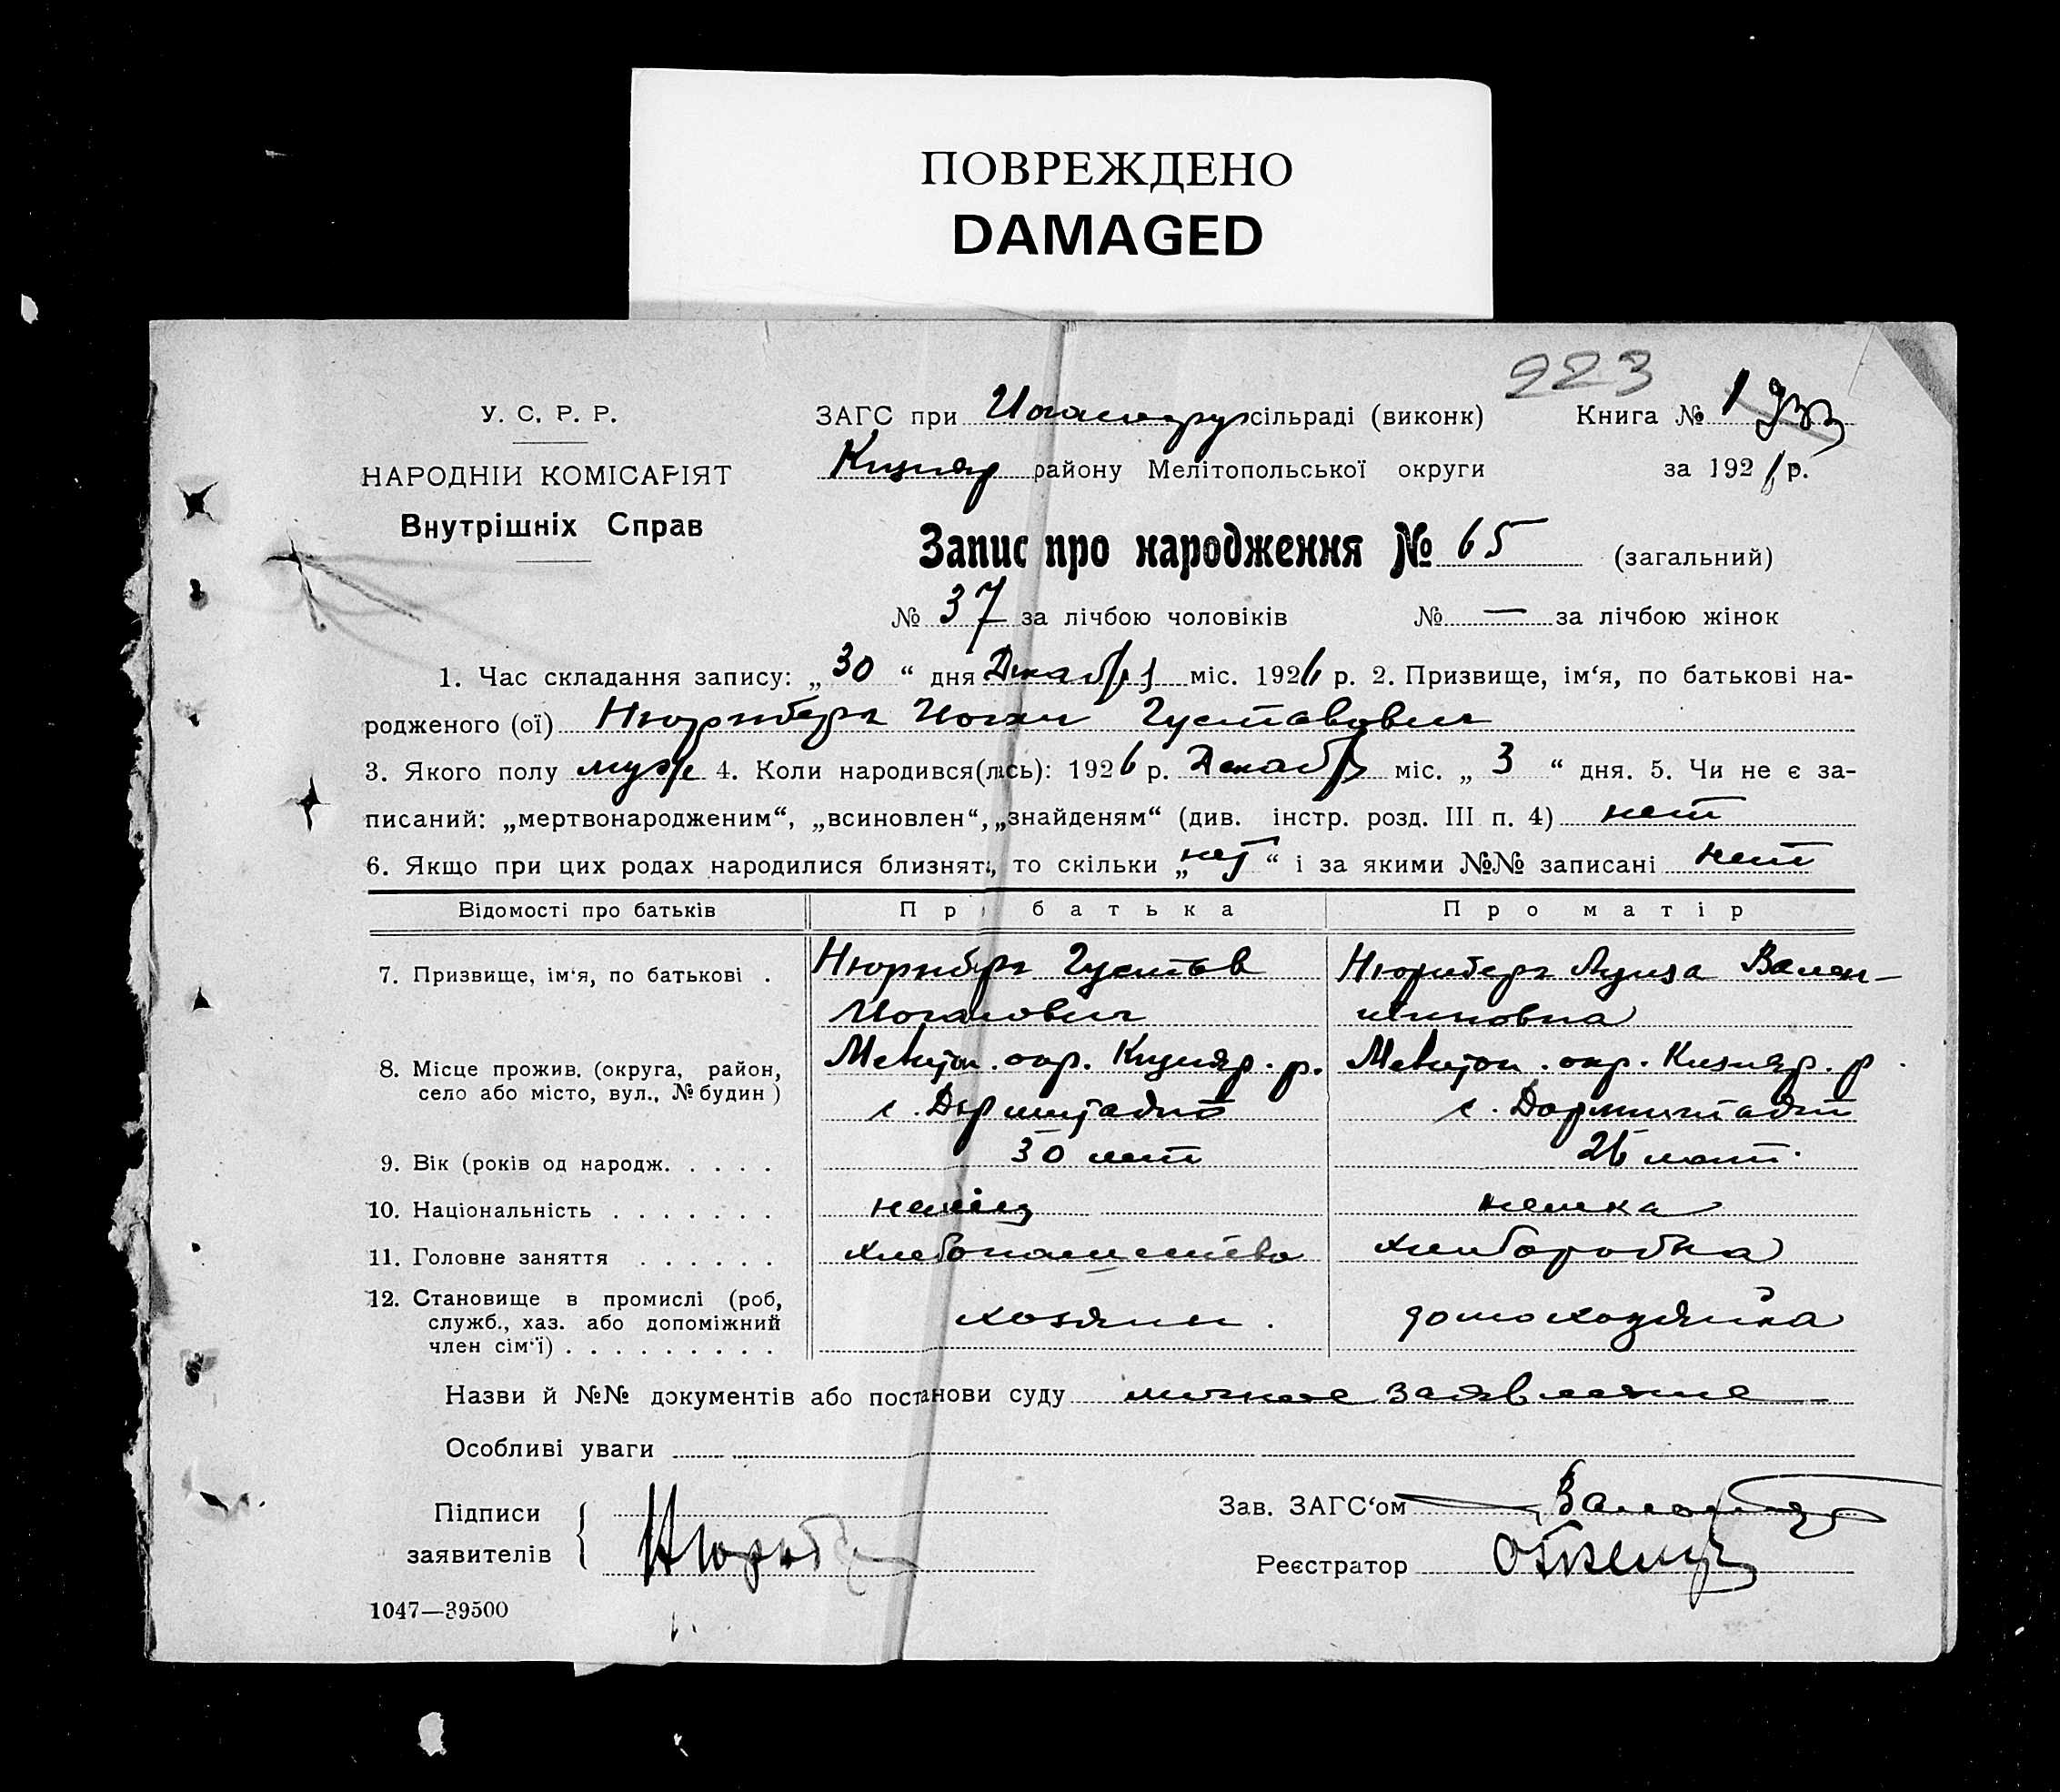 ПОВРЕЖДЕНО
DAMAGED
223
У. С. Р. Р.
ЗАГС при сільраді (виконк) Книга № 1
НАРОДНІЙ КОМІСАРІЯТ
Кизияр району Мелітопольської округи за 1926 р.
Внутрішніх Справ
Запис про народження № 65 (загальний)
№ 37 за лічбою чоловіків № — за лічбою жінок
1. Час складання запису: „ 30 “ дня Декабря міс. 1926 р. 2. Призвище, ім‘я, по батькові на-
родженого (ої) Нюрнберг Иоган Густавович
3. Якого полу муж 4. Коли народився(лась): 1926 р. Декабр міс. „ 3 “ дня. 5. Чи не є за-
писаний: „мертвонародженим“, „всиновлен“, „знайденям“ (див. інстр. розд. III п. 4) нет
6. Якщо при цих родах народилися близнята, то скільки „ нет “ і за якими №№ записані нет
Відомості про батьків Про батька Про матір
7. Призвище, ім‘я, по батькові . Нюрнберг Густав Нюрнберг Луиза Вален-
Иоганович тиновна
8. Місце прожив. (округа, район, Мелитоп. окр. Кизияр. р. Мелитоп. окр. Кизияр. р.
село або місто, вул., № будин) с. Дармштадт с. Дармштадт
9. Вік (років од народж. . . . . 30 лет 26 лет.
10. Національність . . . . . . . немец немка
11. Головне заняття . . . . . . хлебопашество хлеборобка
12. Становище в промислі (роб,
служб., хаз. або допоміжний хозяин. домохозяйка
член сім‘ї) . . . . . . . . .
Назви й №№ документів або постанови суду личное заявление
Особливі уваги
Підписи Зав. ЗАГС‘ом
заявителів
Реєстратор
1047—39500